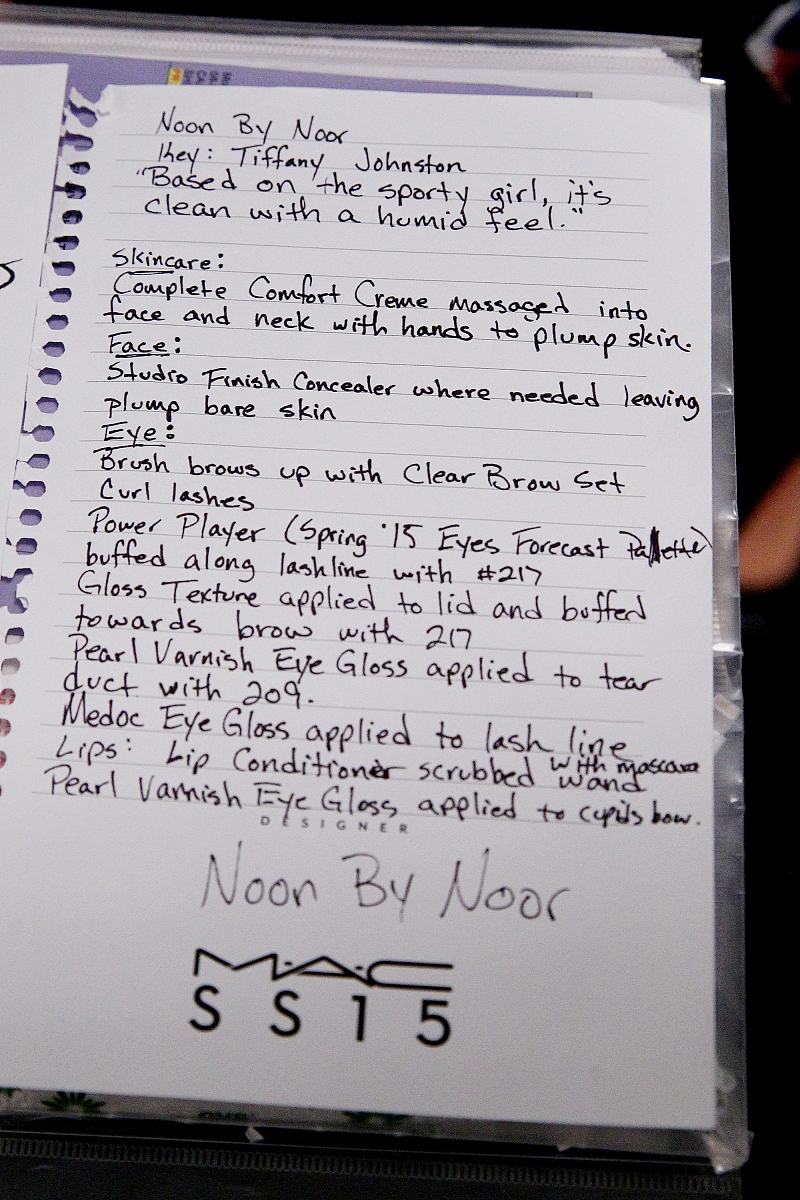 Noon By Noor
Key: Tiffany Johnston
"Based on the sporty girl, it's
clean with a humid feel."
Skincare:
Complete Comfort Creme massaged into
face and neck with hands to plump skin.
Face:
Studio Finish Concealer where needed leaving
plump bare skin
Eye:
Brush brows up with Clear Brow Set
Curl lashes
Power Player (Spring '15 Eyes Forecast Pallette)
buffed along lashline with #217
Gloss Texture applied to lid and buffed
towards brow with 217
Pearl Varnish Eye Gloss applied to tear
duct with 209.
Medoc Eye Gloss applied to lash line
Lips: Lip Conditioner scrubbed with mascara
wand
Pearl Varnish Eye Gloss applied to cupids bow.
DESIGNER
Noon By Noor
MAC
SS15